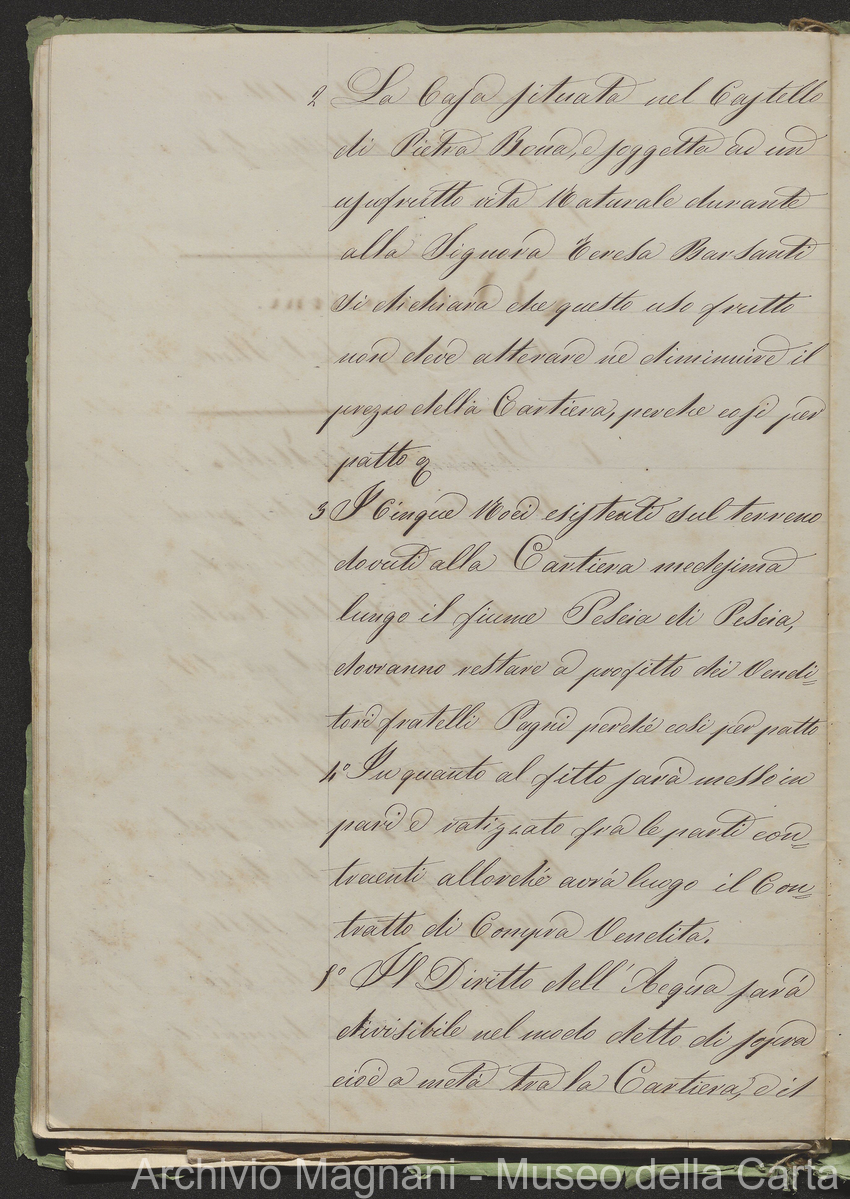 2 La Casa situata nel Castello
di Pietra Bona, è soggetta ad un
usufrutto vita Naturale durante
alla Signora Teresa Barsanti
si dichiara che questo uso frutto
non deve alterare ne diminuire il
prezzo della Cartiera, perche cosi per
patto
3 I Cinque Noci esistenti sul terreno
dovuti alla Cartiera medesima
lungo il fiume Pescia di Pescia,
dovranno restare a profitto dei Vendi=
tori fratelli Pagni perché cosi per patto
4° In quanto al fitto sarà messo in
pari e ratizzato fra le parti con=
traenti allorché avrá luogo il Con=
tratto di Compra Vendita.
5° Il Diritto dell'Acqua sará
divisibile nel modo detto di sopra
cioè a metá tra la Cartiera, e il
Archivio Magnani - Museo della Carta